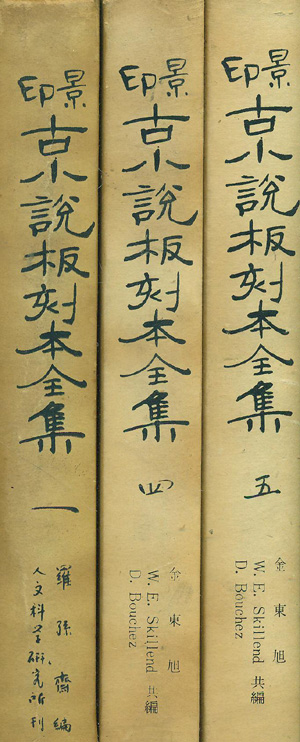 景印
古小說板刻本全集 一
羅孫齋編
人文科学研究所刊
景印
古小說板刻本全集 四
金東旭
W. E. Skillend 共編
D. Bouchez
景印
古小說板刻本全集 五
金東旭
W. E. Skillend 共編
D. Bouchez